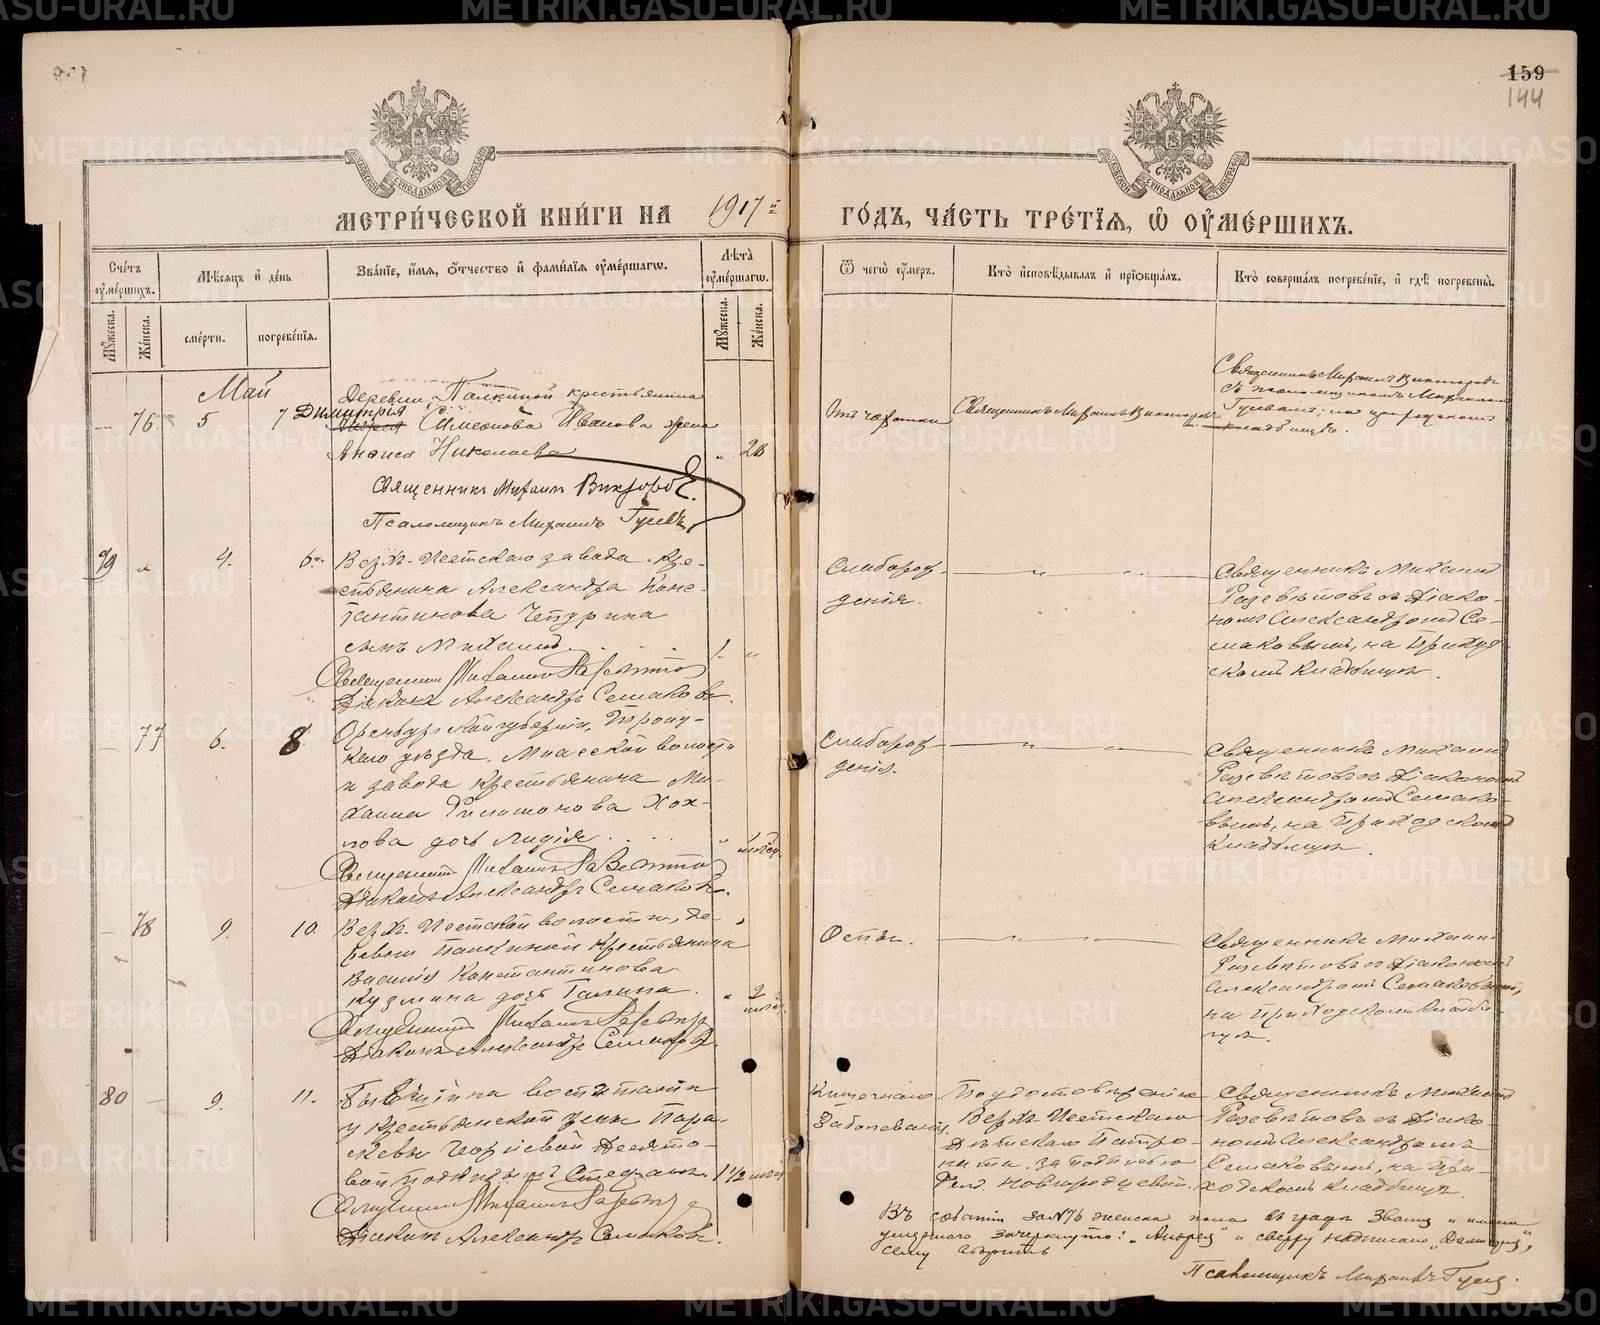 METRIKI.GASO-URAL.RU
159
144
МОСКОВСКОЙ СѴНОДАЛЬНОЙ ТИПОГРАФІИ
МЕТРИ́ЧЕСКОЙ КНИ́ГИ НА 1917й
ГО́ДЪ, ЧА́СТЬ ТРЕ́ТІЯ, Ѿ ОУМЕ́РШИХЪ.
Сче́тъ оуме́ршихъ.
Мѣ́сяцъ и день
Зва́нїе, и́мя, о́тчество и фами́лїя оуме́ршагѡ.
Лѣта̀ оуме́ршагѡ.
Ѿ чегѡ̀ оу́меръ.
Кто̀ и҆сповѣ́дывалъ и҆ прїѡбща́лъ.
Кто̀ соверша́лъ погребе́нїе, и҆ гдѣ̀ погребены̀.
Мꙋ́жеска.
Же́нска.
сме́рти.
погребе́нїя.
Мꙋ́жеска.
Же́нска.
Май
76. 5 7
Деревни Палкиной крестьянина
Димитрія
Андрея Симеонова Иванова жена
Аниса Николаева " 28
Священник Михаил Викторов
Псаломщикъ Михаилъ Гусевъ
Отъ чахотки
Священникъ Михаилъ Викторовъ
Священникъ Михаилъ Викторовъ
съ псаломщикомъ Михаиломъ
Гусевымъ; на приходскомъ
кладбищѣ.
79 " 4. 6.
Верх-Исетскаго завода кре-
стьянина Александра Конс-
тантинова Чепурина
сынъ Михаилъ 1. "
Священник Михаилъ
Діаконъ Александръ Семаковъ.
Слаборож-
денія.
Священникъ Михаилъ
съ Діако-
номъ Александромъ Се-
маковымъ, на Приход-
скомъ кладбищѣ.
77 6. 8
Оренбургской губерніи, Троиц-
каго уѣзда, Міасской волости
и завода крестьянина Ми-
хаила Филимонова Хох-
лова дочь Лидія
Священник Михаилъ
Діаконъ Александръ Семаковъ.
Слаборож-
денія.
Священникъ Михаилъ
съ Діакономъ
Александромъ Семако-
вымъ, на Приходскомъ
кладбищѣ.
78 9. 10.
Верх-Исетской волости, де-
ревни Палкиной крестьянина
Василія Константинова
Кузмина дочь Галина. " 2
мѣс.
Священник Михаилъ
Діаконъ Александръ Семаковъ.
Оспы.
Священникъ Михаилъ
съ Діакономъ
Александромъ Семаковымъ,
на Приходскомъ кладби-
щѣ.
80 — 9. 11.
Бывшій на воспитаніи
у крестьянской жены Пара-
скевы Георгіевой Десято-
вой подкидышъ Стефанъ. 1 1/2 мѣс.
Священник Михаилъ
Діаконъ Александръ Семаковъ.
Кишечнаго
Заболеванія.
По удостовѣренію
Верх-Исетскаго
Дѣтскаго Патро-
ната за подписью
Новгородцевой.
Священникъ Михаилъ
съ Діако-
номъ Александромъ
Семаковымъ, на При-
ходскомъ кладбищѣ.
Въ событіи за №76 женска пола въ графѣ Званіе и имени
умершаго зачеркнуто: "Андрея" и сверху надписано "Димитрія",
сему вѣрить
Псаломщикъ Михаилъ Гусевъ.